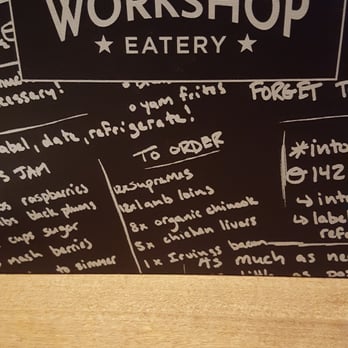 WORKSHOP
★ EATERY ★
essary!
yam frites
FORGET T
abel, date, refrigerate!
S JAM
raspberries
black plums
cups sugar
mash berries
to simmer
TO ORDER
supremes
lamb loins
8x organic chinook
5x chicken livers
1x Irvings bacon
AS much as ne
*into
142
→ int
→ label